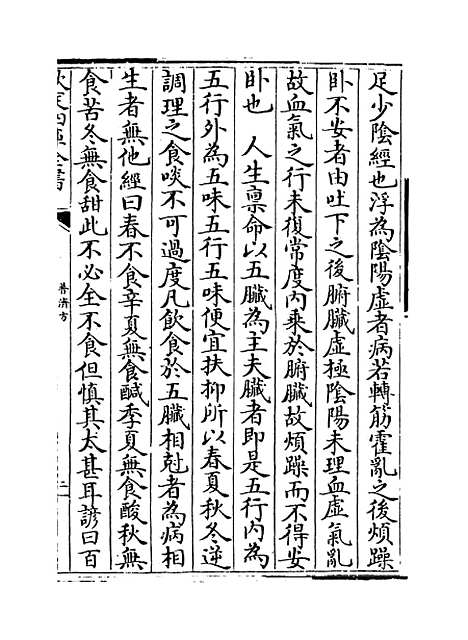 足少陰經也浮為陰陽虛者病若轉筋霍亂之後煩躁
卧不安者由吐下之後腑臟虛極陰陽未理血虛氣亂
故血氣之行未復常度内乘於腑臟故煩躁而不得安
卧也　人生禀命以五臟為主夫臟者即是五行内為
五行外為五味五行五味便宜扶抑所以春夏秋冬逆
調理之食啖不可過度凡飲食於五臟相尅者為病相
生者無他經曰春不食辛夏無食鹹季夏無食酸秋無
食苦冬無食甜此不必全不食但慎其太甚耳諺曰百
欽定四庫全書
普濟方
二